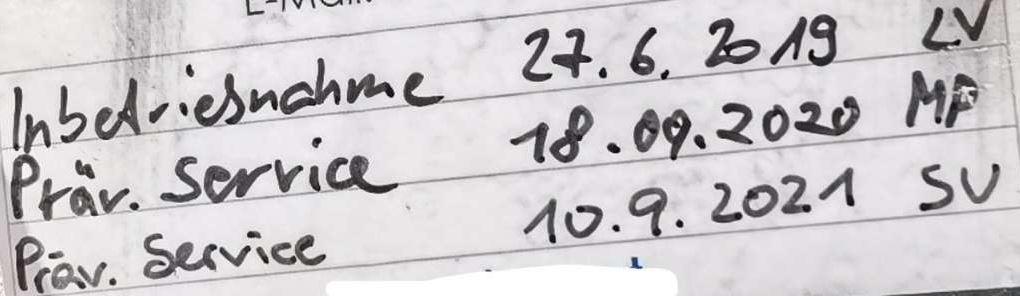 Inbetriebnahme 27.6.2019 LV
Präv. Service 18.09.2020 MP
Präv. Service 10.9.2021 SV